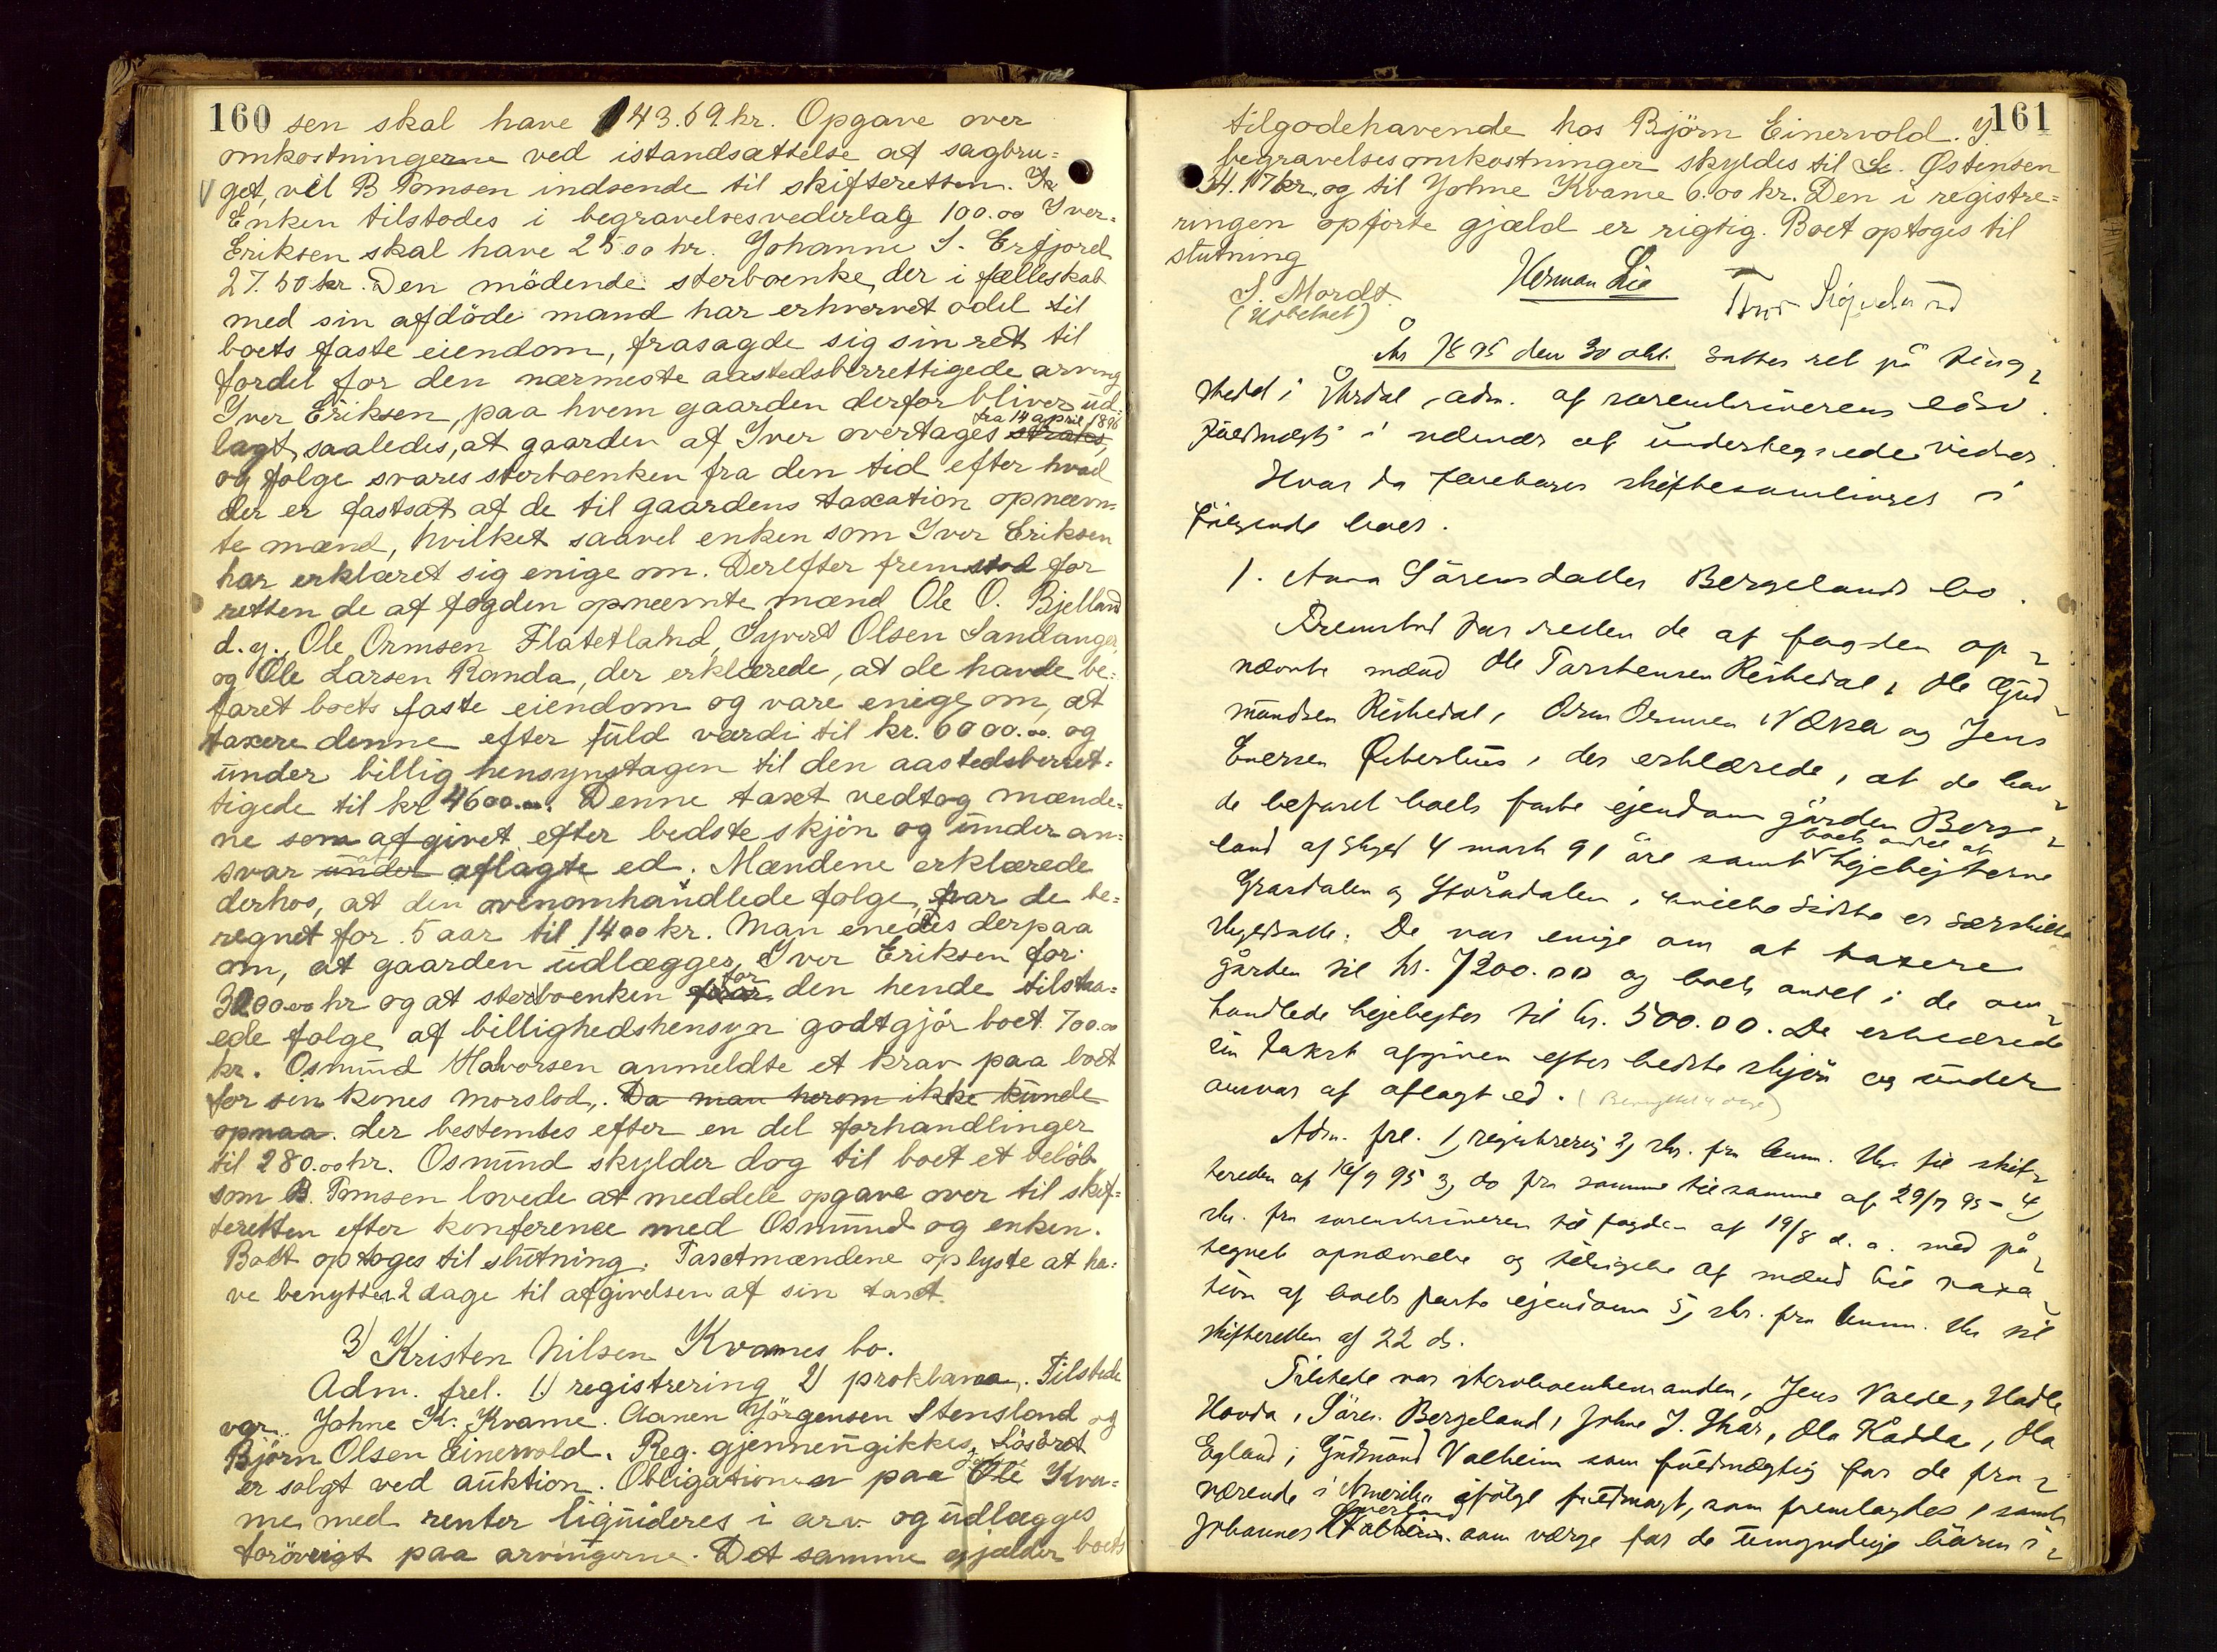 160 sen skal have 143.69 kr. Opgave over
omkostningerne ved istandsættelse af sagbru=
get, vil B Tomsen indsende til skifteretten.
Enken tilstodes i begravelsesvederlag 100.00 Iver
Eriksen skal have 25.00 kr. Johanne S. Erfjord
27.50 kr. Den mödende sterboenke, der i fælleskab
med sin afdöde mand har erhvervet odel til
boets faste eiendom, frasagde sig sin ret til
fordel for den nærmeste aastedsberettigede arving
Iver Eriksen, paa hvem gaarden derfor bliver ud=
fra 14 april 1896
lagt, saaledes, at gaarden af Iver overtages straks,
og følge svares sterboenken fra den tid efter hvad
der er fastsat af de til gaardens taxation opnævn
te mænd, hvilket saavel enken som Iver Eriksen
har erklæret sig enige om. Derefter fremstod for
retten de af fogden opnævnte mænd Ole O. Bjelland
d.y., Ole Ormsen Flatetland, Syvert Olsen Sandanger,
og Ole Larsen Randa, der erklærede, at de havde be=
faret boets faste eiendom og vare enige om, at
taxere denne efter fuld værdi til kr. 6000.00 og
under billig hensynstagen til den aastedsberret=
tigede til kr 4600.00. Denne taxt vedtog mænde=
ne som afgivet efter bedste skjön og under an=
svar under af aflagte ed. Mændene erklærede
derhos, at den ovenomhandlede følge, har de be=
regnet for 5 aar til 1400 kr. Man enedes derpaa
om, at gaarden udlægges Iver Eriksen for
3200.00 kr og at sterboenken for den hende tilstaa=
ede følge af billighedshensyn godtgjör boet 700.00
kr. Osmund Halvorsen anmeldte et krav paa boet
for sin kones morslod,. Da man herom ikke kunde
opnaa. der bestemtes efter en del forhandlinger
til 280.00 kr. Osmund skylder dog til boet et belöb
som B. Tomsen lovede at meddele opgave over til skif=
teretten efter konference med Osmund og enken.
Boet optoges til slutning. Taxtmændene oplyste at ha=
ve benyttet 2 dage til afgivelsen af sin taxt.
3) Kristen Nilsen Kvames bo.
Adm. frel. 1) registrering 2) proklama. Tilstede
var Johne K. Kvame. Aanen Jörgensen Stensland og
Björn Olsen Einervold. Reg. gjennemgikkes. Lösöret
er solgt ved auktion. Obligationen paa Ole Kva=
me med renter liquideres i arv og udlægges
forövrigt paa arvingerne. Det samme gjælder boets
161
tilgodehavende hos Björn Einervold. I
begravelsesomkostninger skyldes til L. Østensen
34.17 kr. og til Johne Kvame 6.00 kr. Den i registre=
ringen opförte gjæld er rigtig. Boet optoges til
slutning
S. Mordt Herman Lie
År 1895 den 30 okt. sattes ret på ting-
sted i Årdal, adm. af sorenskriverens edsv.
fuldmægtig i nærvær af undertegnede vidner.
Hvor da foretoges skiftesamlinger i
følgende boer.
1. Anna Sörensdatter Bergelands bo.
Fremstod for retten de af fogden op-
nævnte mænd Ole Torstensen Riskedal, Ole Gud-
mundsen Riskedal, Orm Ormsen Næsa og Jens
Eversen Østerhus, der erklærede, at de hav-
de befaret boets faste ejendom gården Berge-
boets andel af
land af skyld 4 mark 91 öre samt hejebejterne
Grasdalen og Storådalen, hvilke sidste er særskilt
skyldsatte. De var enige om at taxere
gården til kr. 7200.00 og boets andel i de om-
handlede hejebejter til kr. 500.00. De erklærede
sin takst afgiven efter bedste skjön og under
ansvar af aflagt ed.
Adm. frel. 1, registrering 2, skr. fra til skif-
teretten af 16/9 95 3, do fra samme til samme af 29/9 95 - 4,
skr. fra sorenskriveren til fogden af 19/8 d. a. med på-
tegnet opnævnelse og tilsigelse af mænd til taxa-
tion af boets faste ejendom 5, skr. fra til
skifteretten af 22 ds.
Tilstede var sterboenkemanden, Jens Valde, Hadle
Hovda, Sören Bergeland, Johne J. Skår, Ola Kådda, Ola
Egland, Gudmund Valheim som fuldmægtig for de fra-
værende i Amerika ifölge fuldmagt, som fremlagdes, samt
Johannes Valheim som værge for de umyndige börn i-